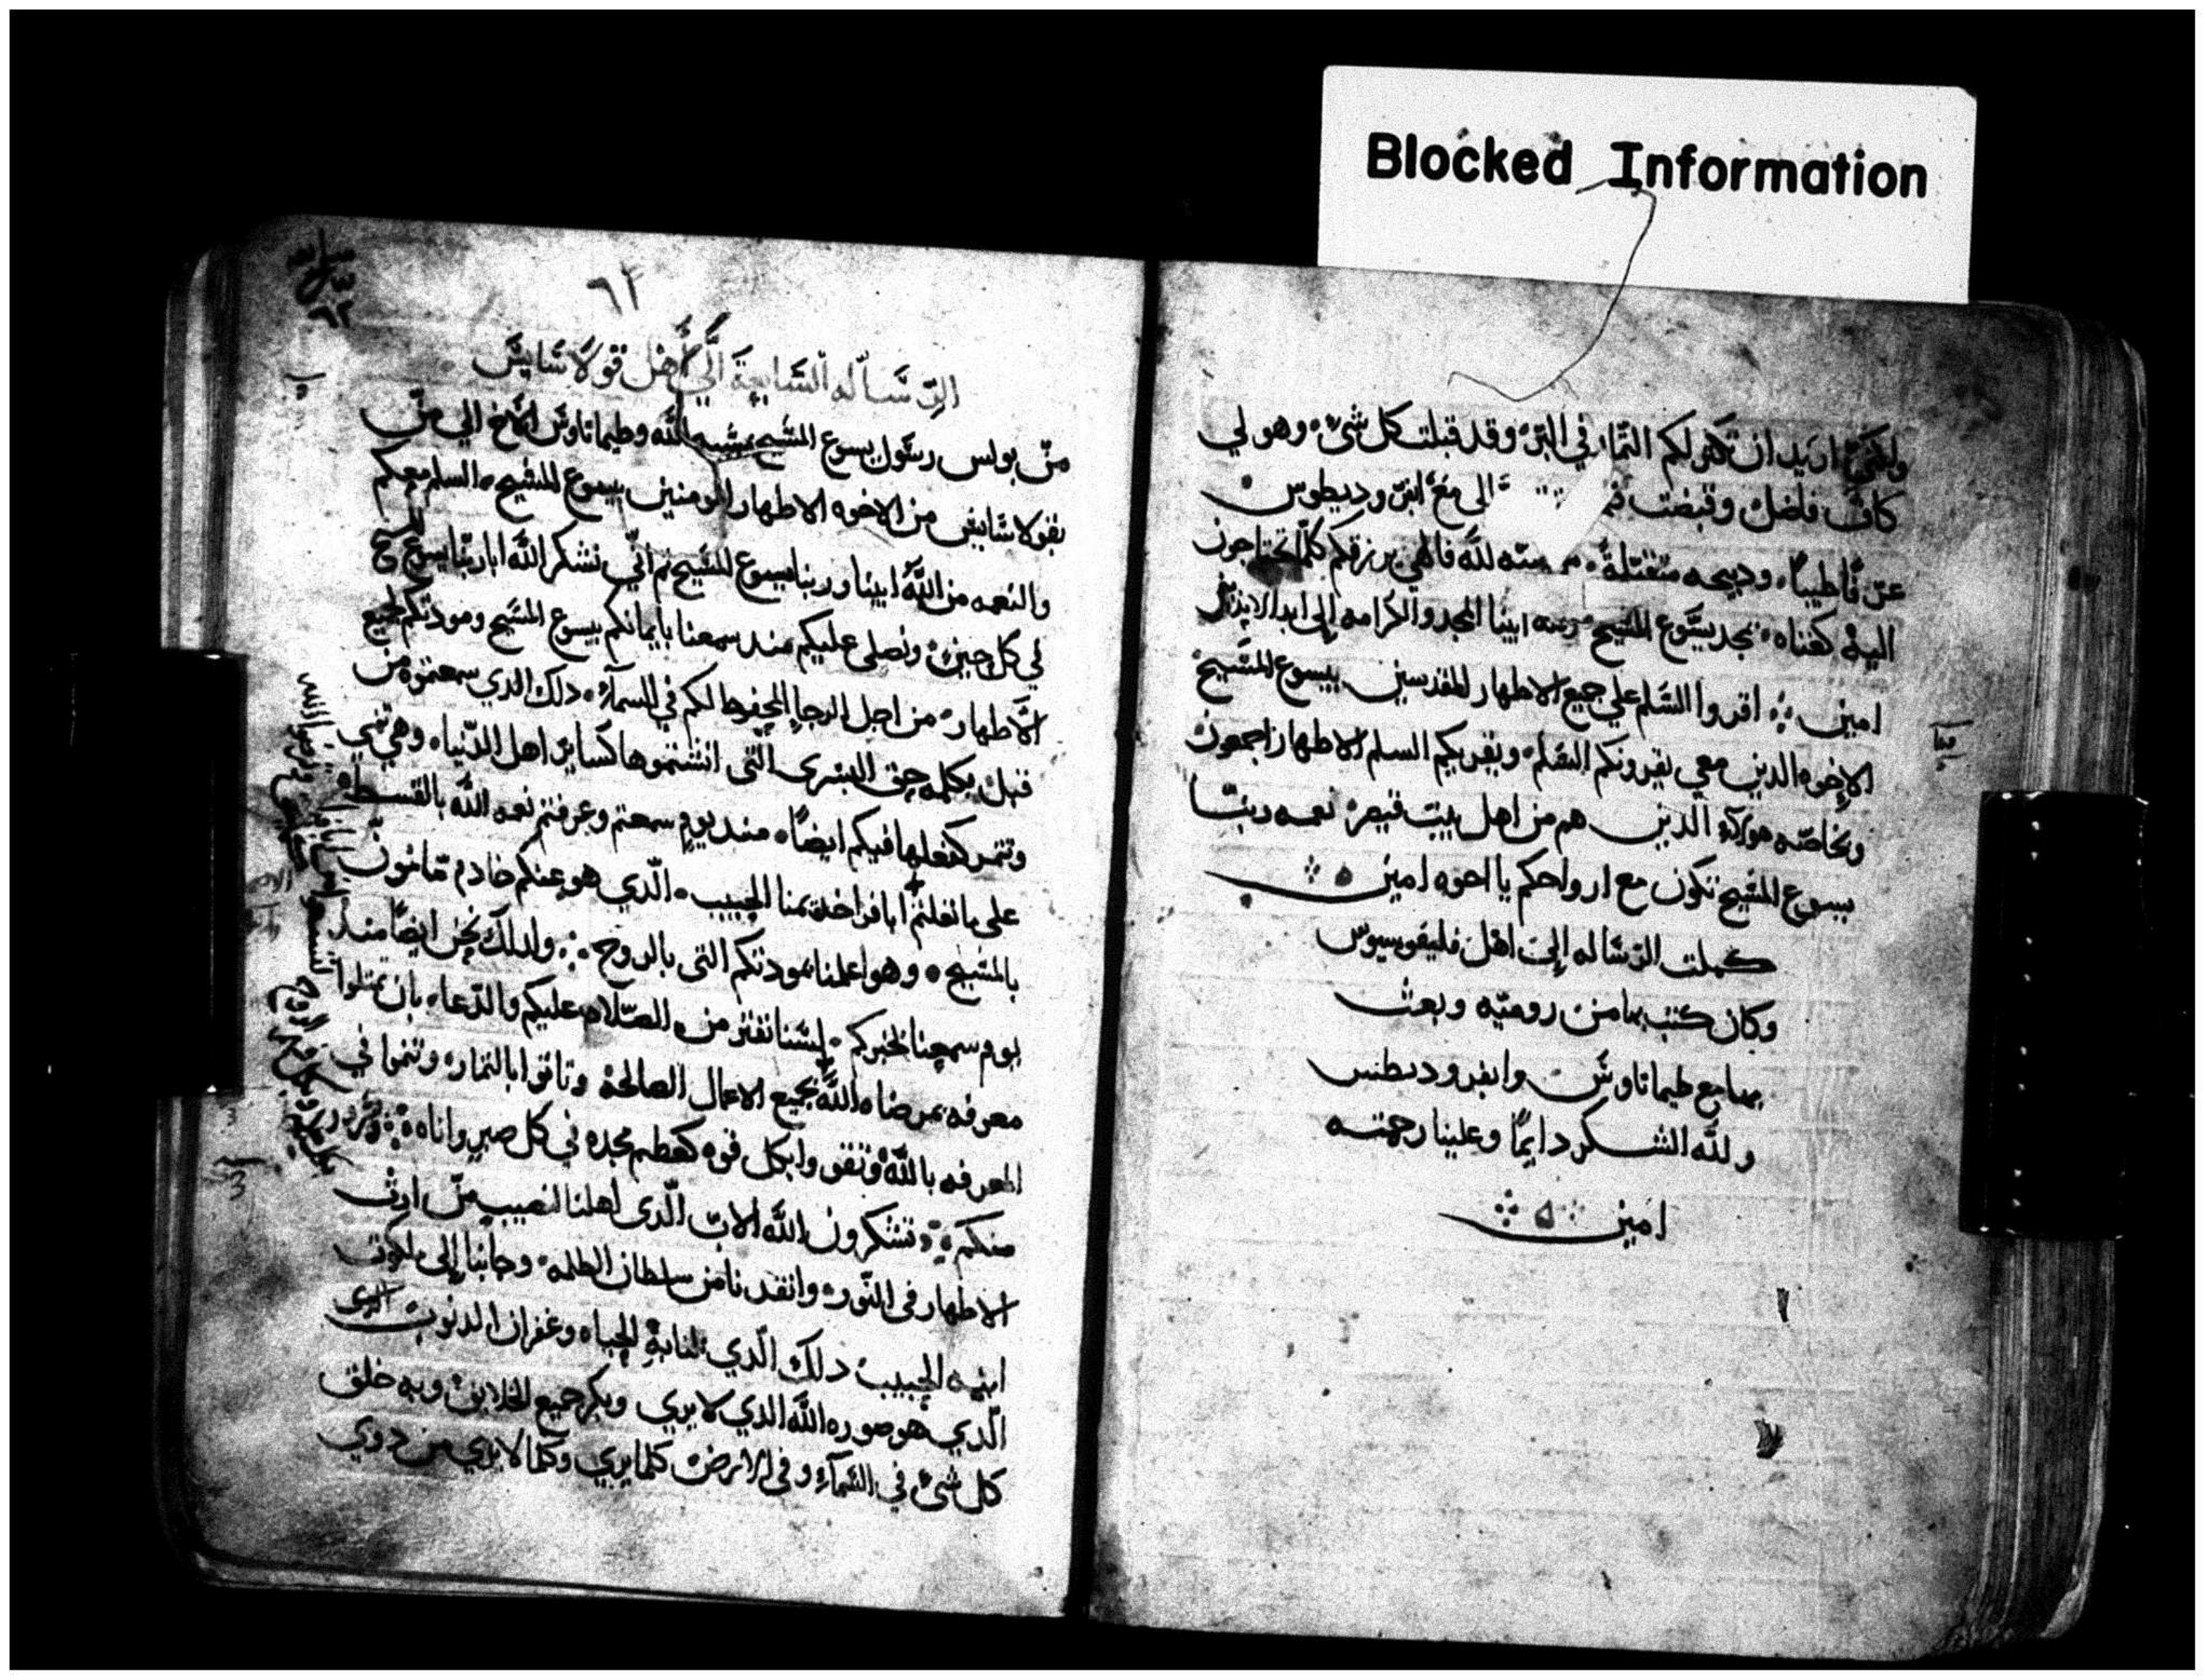 Blocked Information
ولكني اريد ان تكثر لكم الثمار في البر وقد قبلت كل شي وهو لي
كاف فاضل وقبضت الي مع ابفرودیطوس
عرفا طيبا ودبيحه متقبلة لله فالهي يرزقكم كلما تحتاجون
اليه كغناه بمجد يسوع المسيح ابينا المجد والكرامه إلى ابد الابدين
امين اقروا السلم علي جميع الاطهار المقدسين بيسوع المسيح
الاخوه الدين معي يقرونكم السلم ويقريكم السلم الاطهار اجمعون
وبخاصه هولآء الدين هم من اهل بيت قيصر نعمه ربنا
يسوع المسيح تكون مع ارواحكم يا اخوه امين
كملت الرساله إلى اهل فليفوسيوس
وكان كتب بها من روميه وبعث
بها مع طيماتاوس وابفروديطس
ولله الشكر دايمًا وعلينا رحمته
امين
٦٢
الرساله السابعة الي أهل قولاسايس
من بولس رسول يسوع المسيح بمشيه الله وطيماتاوس الاخ الي من
بقولاسايس من الاخوه الاطهار المومنين بيسوع المسيح السلم معكم
والنعمه من الله ابينا وربنا يسوع المسيح ثم انّي نشكر الله ابا ربنا يسوع المسيح
في كل حين ونصلى عليكم مند سمعنا بايمانكم بيسوع المسيح ومودتكم لجميع
الأطهار من اجل الرجا المحفوظ لكم في السمآء دلك الدي سمعتموه من
قبل بكلمه حق البشرى التي انتشتموها كساير اهل الدنيا وهي تنمي
وتثمر كفعلها فيكم ايضًا مند يوم سمعتم وعرفتم نعمه الله بالقسط
على ما تعلمتم ابافرا خليمنا الحبيب الّدي هو عنكم خادم مامون
بالمسيح وهو اعلمنا بمودتكم التى بالروح ولدلك نحن ايضًا مند
يوم سمعنا بخبركم لسنا نفتر من الصلاه عليكم والدّعاء بان تمتلوا
معرفه بمرضاه الله بجميع الاعمال الصالحة وتاتوا بالثمار وتنموا في
المعرفه بالله وتقووا بكل قوه كعظم مجده في كل صبر واناه
منكم تشكرون الله الاب الّدى اهلنا لنصيب من ارث
الاطهار فى النّور وانقدنا من سلطان الظلمه وجابنا إلى ملكوت
ابنه الحبيب دلك الّدي لنا به الحياه وغفران الدنوب
الّدي هو صوره الله الدي لا يري وبكر جميع الخلايق وبه خلق
كل شي في السمآء وفي الارض كلما يري وكلما لا يري من دوي